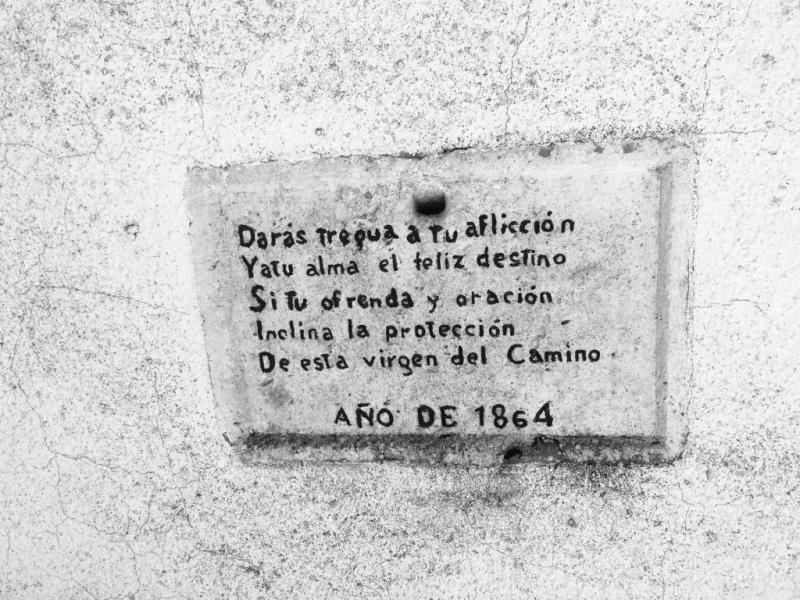 Darás tregua a tu aflicción
Y a tu alma el feliz destino
Si tu ofrenda y oración
Inclina la protección
De esta virgen del Camino
AÑO DE 1864